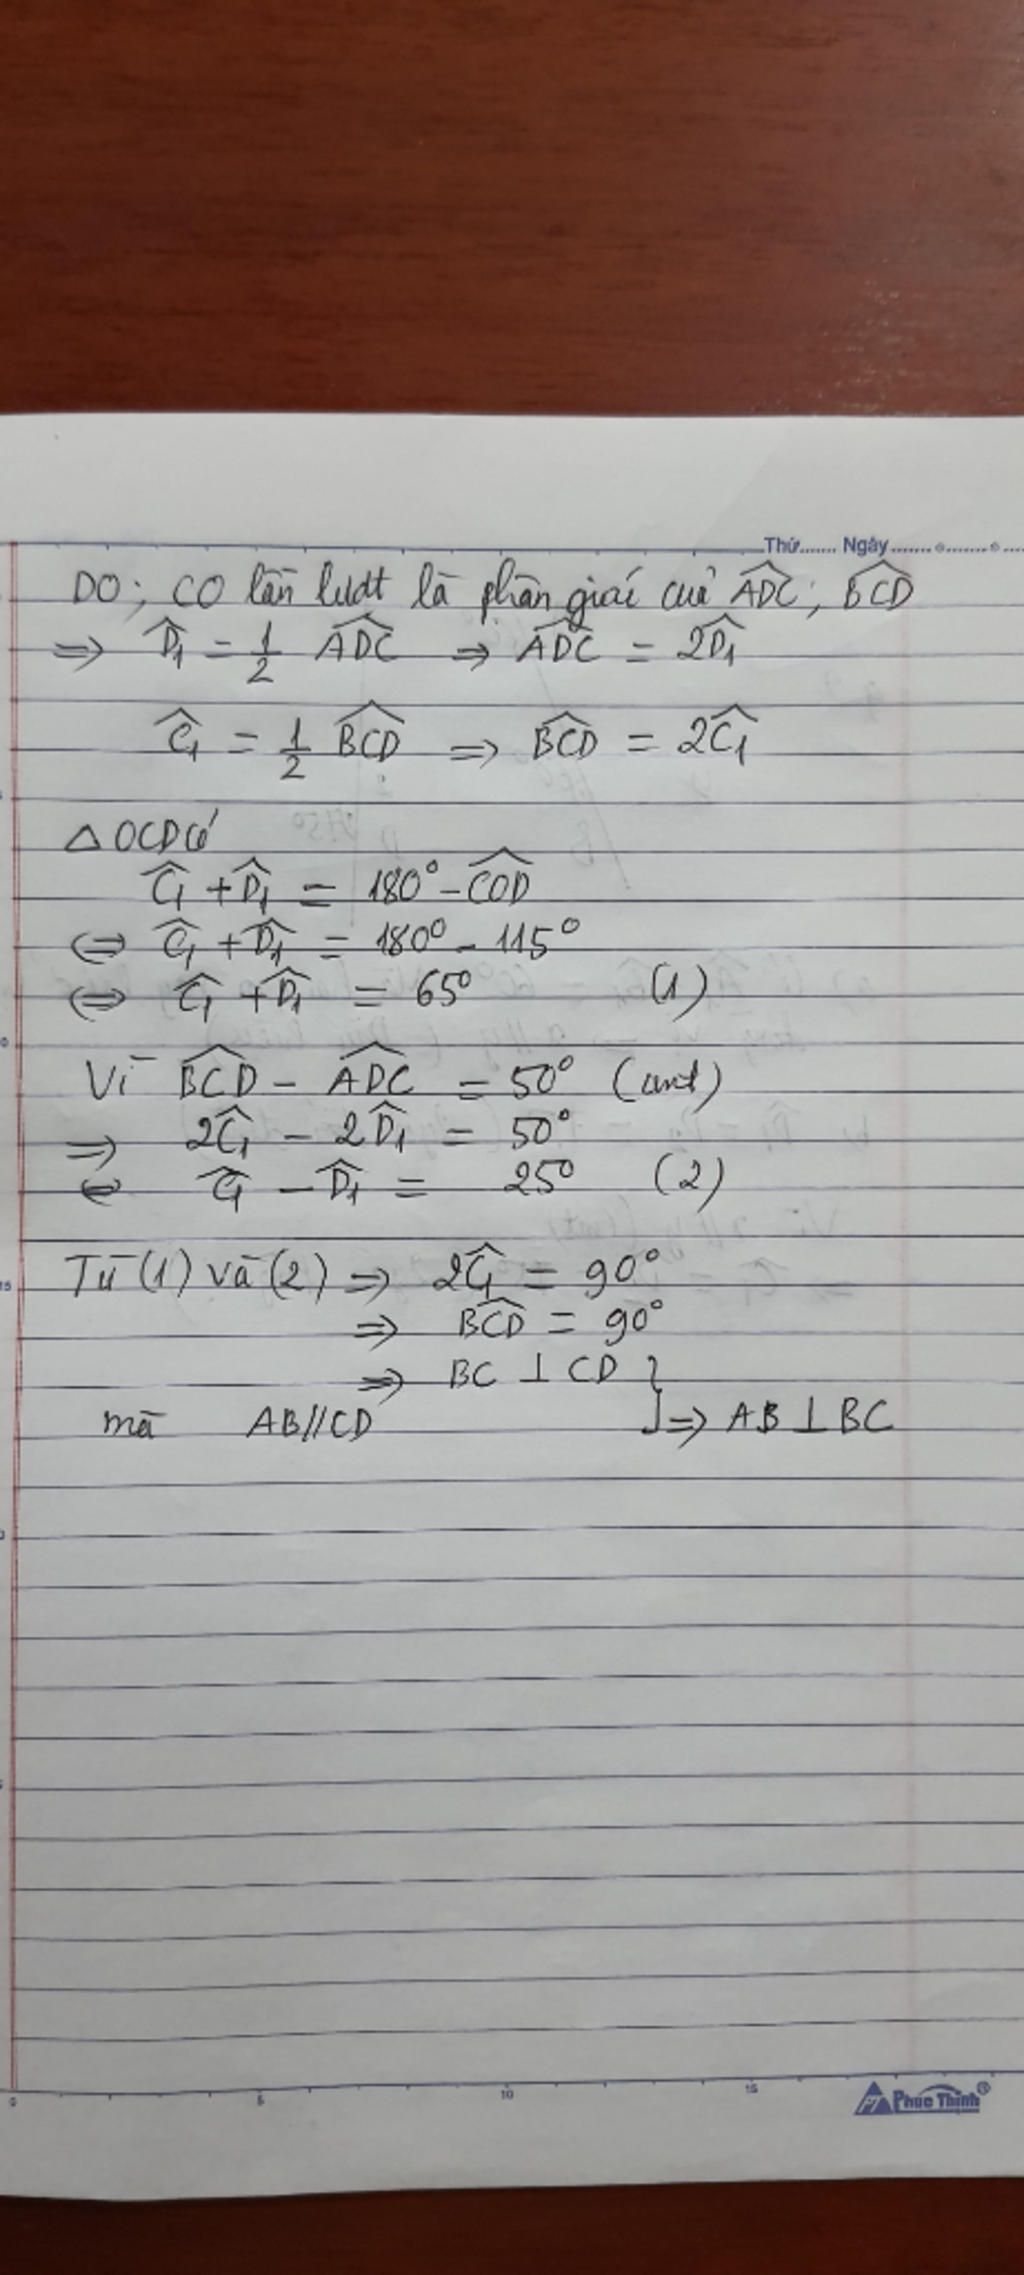 Thứ....... Ngày.......
DO; CO lần lượt là phân giác củả ADC; BCD
⇒ D₁ = 1/2 ADC ⇒ ADC = 2D₁
C₁ = 1/2 BCD ⇒ BCD = 2C₁
△ OCD có
C₁ + D₁ = 180° - COD
⇔ C₁ + D₁ = 180° - 115°
⇔ C₁ + D₁ = 65° (1)
Vì BCD - ADC = 50° (cmt)
⇒ 2C₁ - 2D₁ = 50°
⇔ C₁ - D₁ = 25° (2)
Từ (1) và (2) ⇒ 2C₁ = 90°
⇒ BCD = 90°
⇒ BC ⊥ CD }
mà AB//CD ⇒ AB ⊥ BC
0 5 10 15
Phuc Thinh®